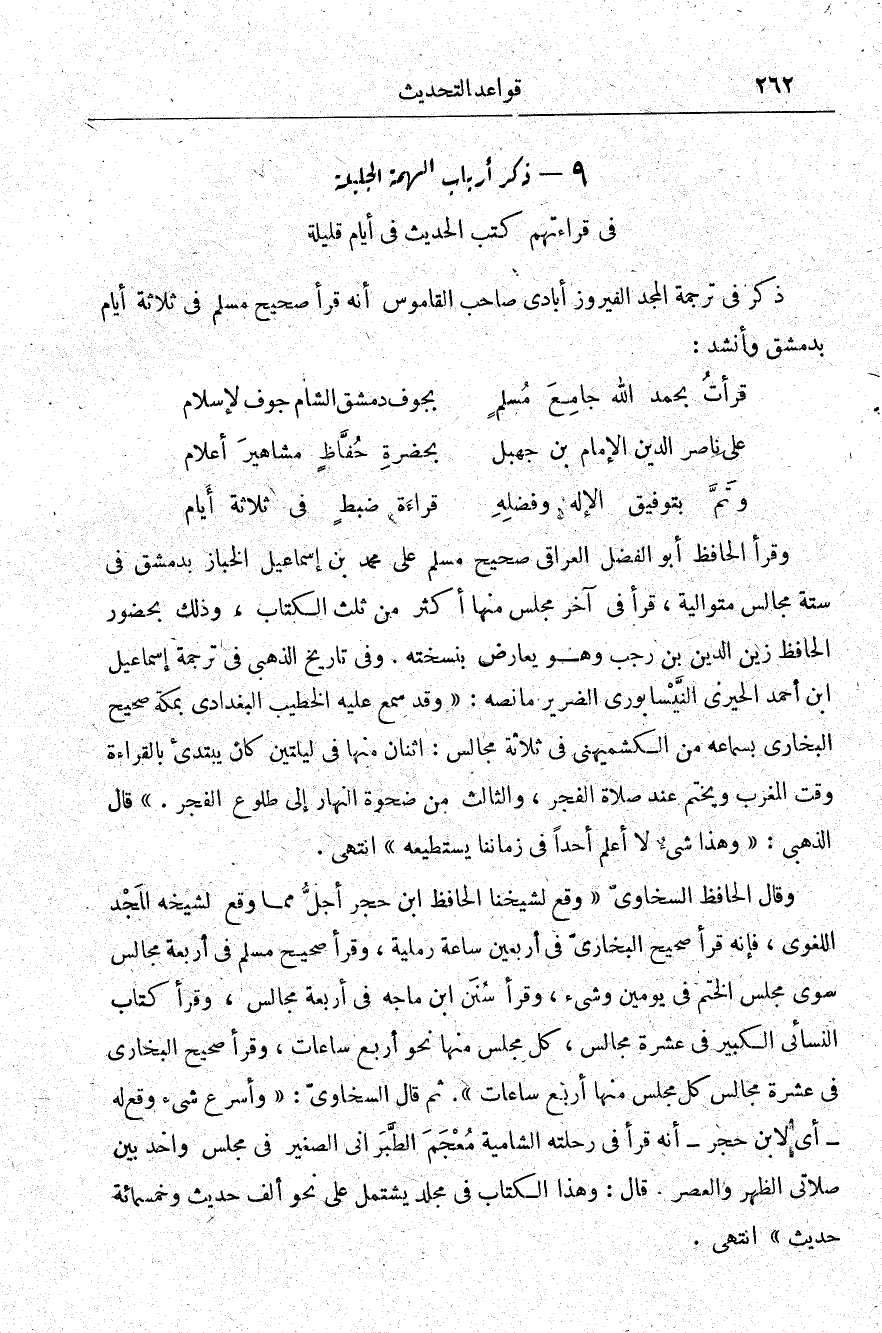 ٢٦٢ قواعد التحديث
٩ — ذكر أرباب الهمة الجليلة
فى قراءتهم كتب الحديث فى أيام قليلة
ذكر فى ترجمة المجد الفيروز أبادى صاحب القاموس أنه قرأ صحيح مسلم فى ثلاثة أيام
بدمشق وأنشد :
قرأتُ بحمد الله جامِعَ مُسلمٍ بجوف دمشق الشام جوف لإسلام
على ناصر الدين الإمام بن جهبل بحضرةِ حُفَّاظٍ مشاهيرَ أعلام
وتَمَّ بتوفيق الإله وفضلِهِ قراءَة ضبطٍ فى ثلاثة أَيام
وقرأ الحافظ أبو الفضل العراقى صحيح مسلم على محمد بن إسماعيل الخباز بدمشق فى
ستة مجالس متوالية ، قرأ فى آخر مجلس منها أكثر من ثلث الكتاب ، وذلك بحضور
الحافظ زين الدين بن رجب وهو يعارض بنسخته . وفى تاريخ الذهبى فى ترجمة إسماعيل
ابن أحمد الحيرى النَّيْسابورى الضرير مانصه : « وقد سمع عليه الخطيب البغدادى بمكة صحيح
البخارى بسماعه من الكشميهنى فى ثلاثة مجالس : اثنان منها فى ليلتين كان يبتدئ بالقراءة
وقت المغرب ويختم عند صلاة الفجر ، والثالث من ضحوة النهار إلى طلوع الفجر . » قال
الذهبى : « وهذا شىء لا أعلم أحداً فى زماننا يستطيعه » انتهى .
وقال الحافظ السخاوىّ « وقع لشيخنا الحافظ ابن حجر أجلُّ مما وقع لشيخه المَجْد
اللغوى ، فإنه قرأ صحيح البخارىّ فى أربعين ساعة رملية ، وقرأ صحيح مسلم فى أربعة مجالس
سوى مجلس الختم فى يومين وشىء ، وقرأ سُنَن ابن ماجه فى أربعة مجالس ، وقرأ كتاب
النسائى الكبير فى عشرة مجالس ، كل مجلس منها نحو أربع ساعات ، وقرأ صحيح البخارى
فى عشرة مجالس كل مجلس منها أربع ساعات ». ثم قال السخاوىّ : « وأسرع شىء وقع له
ــ أى لابن حجر ــ أنه قرأ فى رحلته الشامية مُعْجَمَ الطَّبَرانى الصغير فى مجلس واحد بين
صلاتى الظهر والعصر . قال : وهذا الكتاب فى مجلد يشتمل على نحو ألف حديث وخمسمائة
حديث » انتهى .